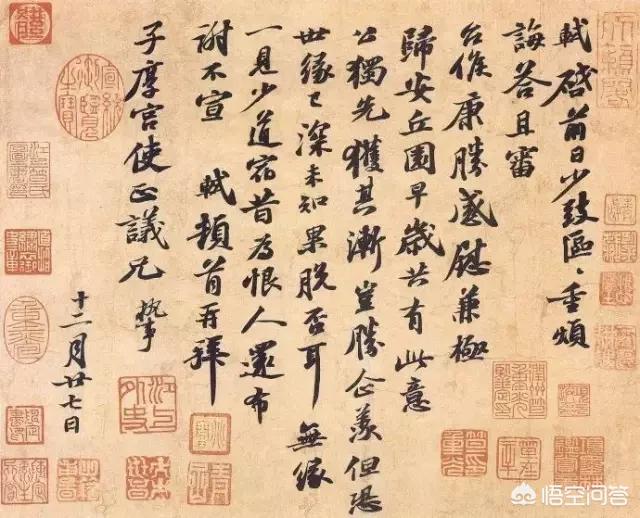 軾啓前日少致區〻重煩
誨答且審
台候康勝感慰兼極
歸安丘園早歲共有此意
公獨先獲其漸豈勝企羨但恐
世緣已深未知果脫否耳無緣
一見少道宿昔為恨人還布
謝不宣 軾頓首再拜
子厚宮使正議兄 執事
十二月廿七日
江上外史
悟空问答